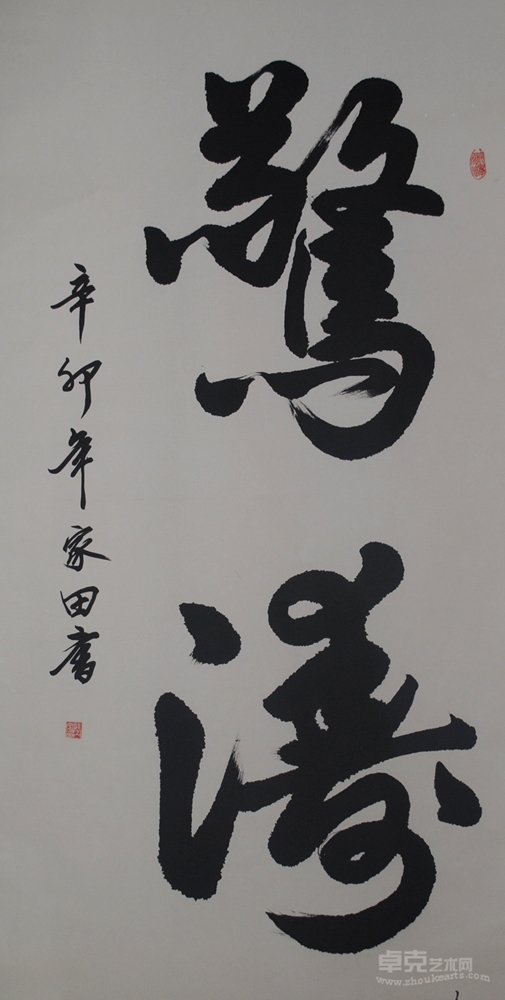 驚濤
辛卯年家田書
卓克艺术网
www.zhoukearts.com